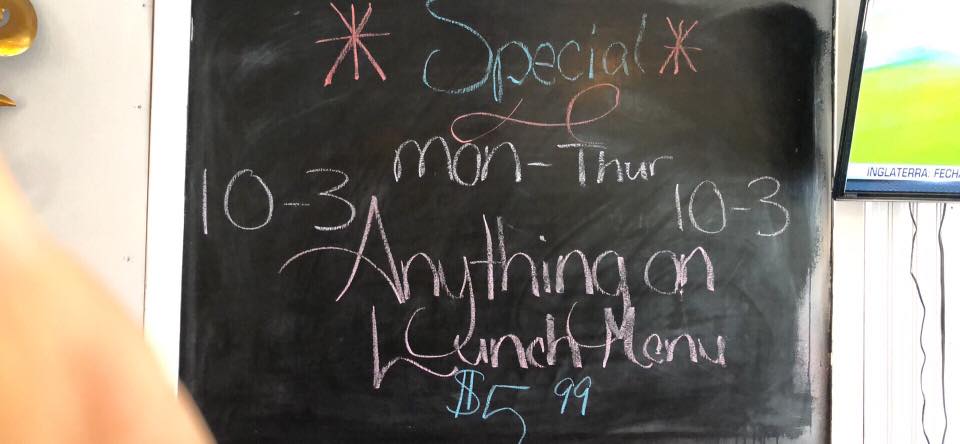 * Special *
Mon-Thur
10-3 10-3
Anything on
Lunch Menu
$5 99
INGLATERRA: FECHA